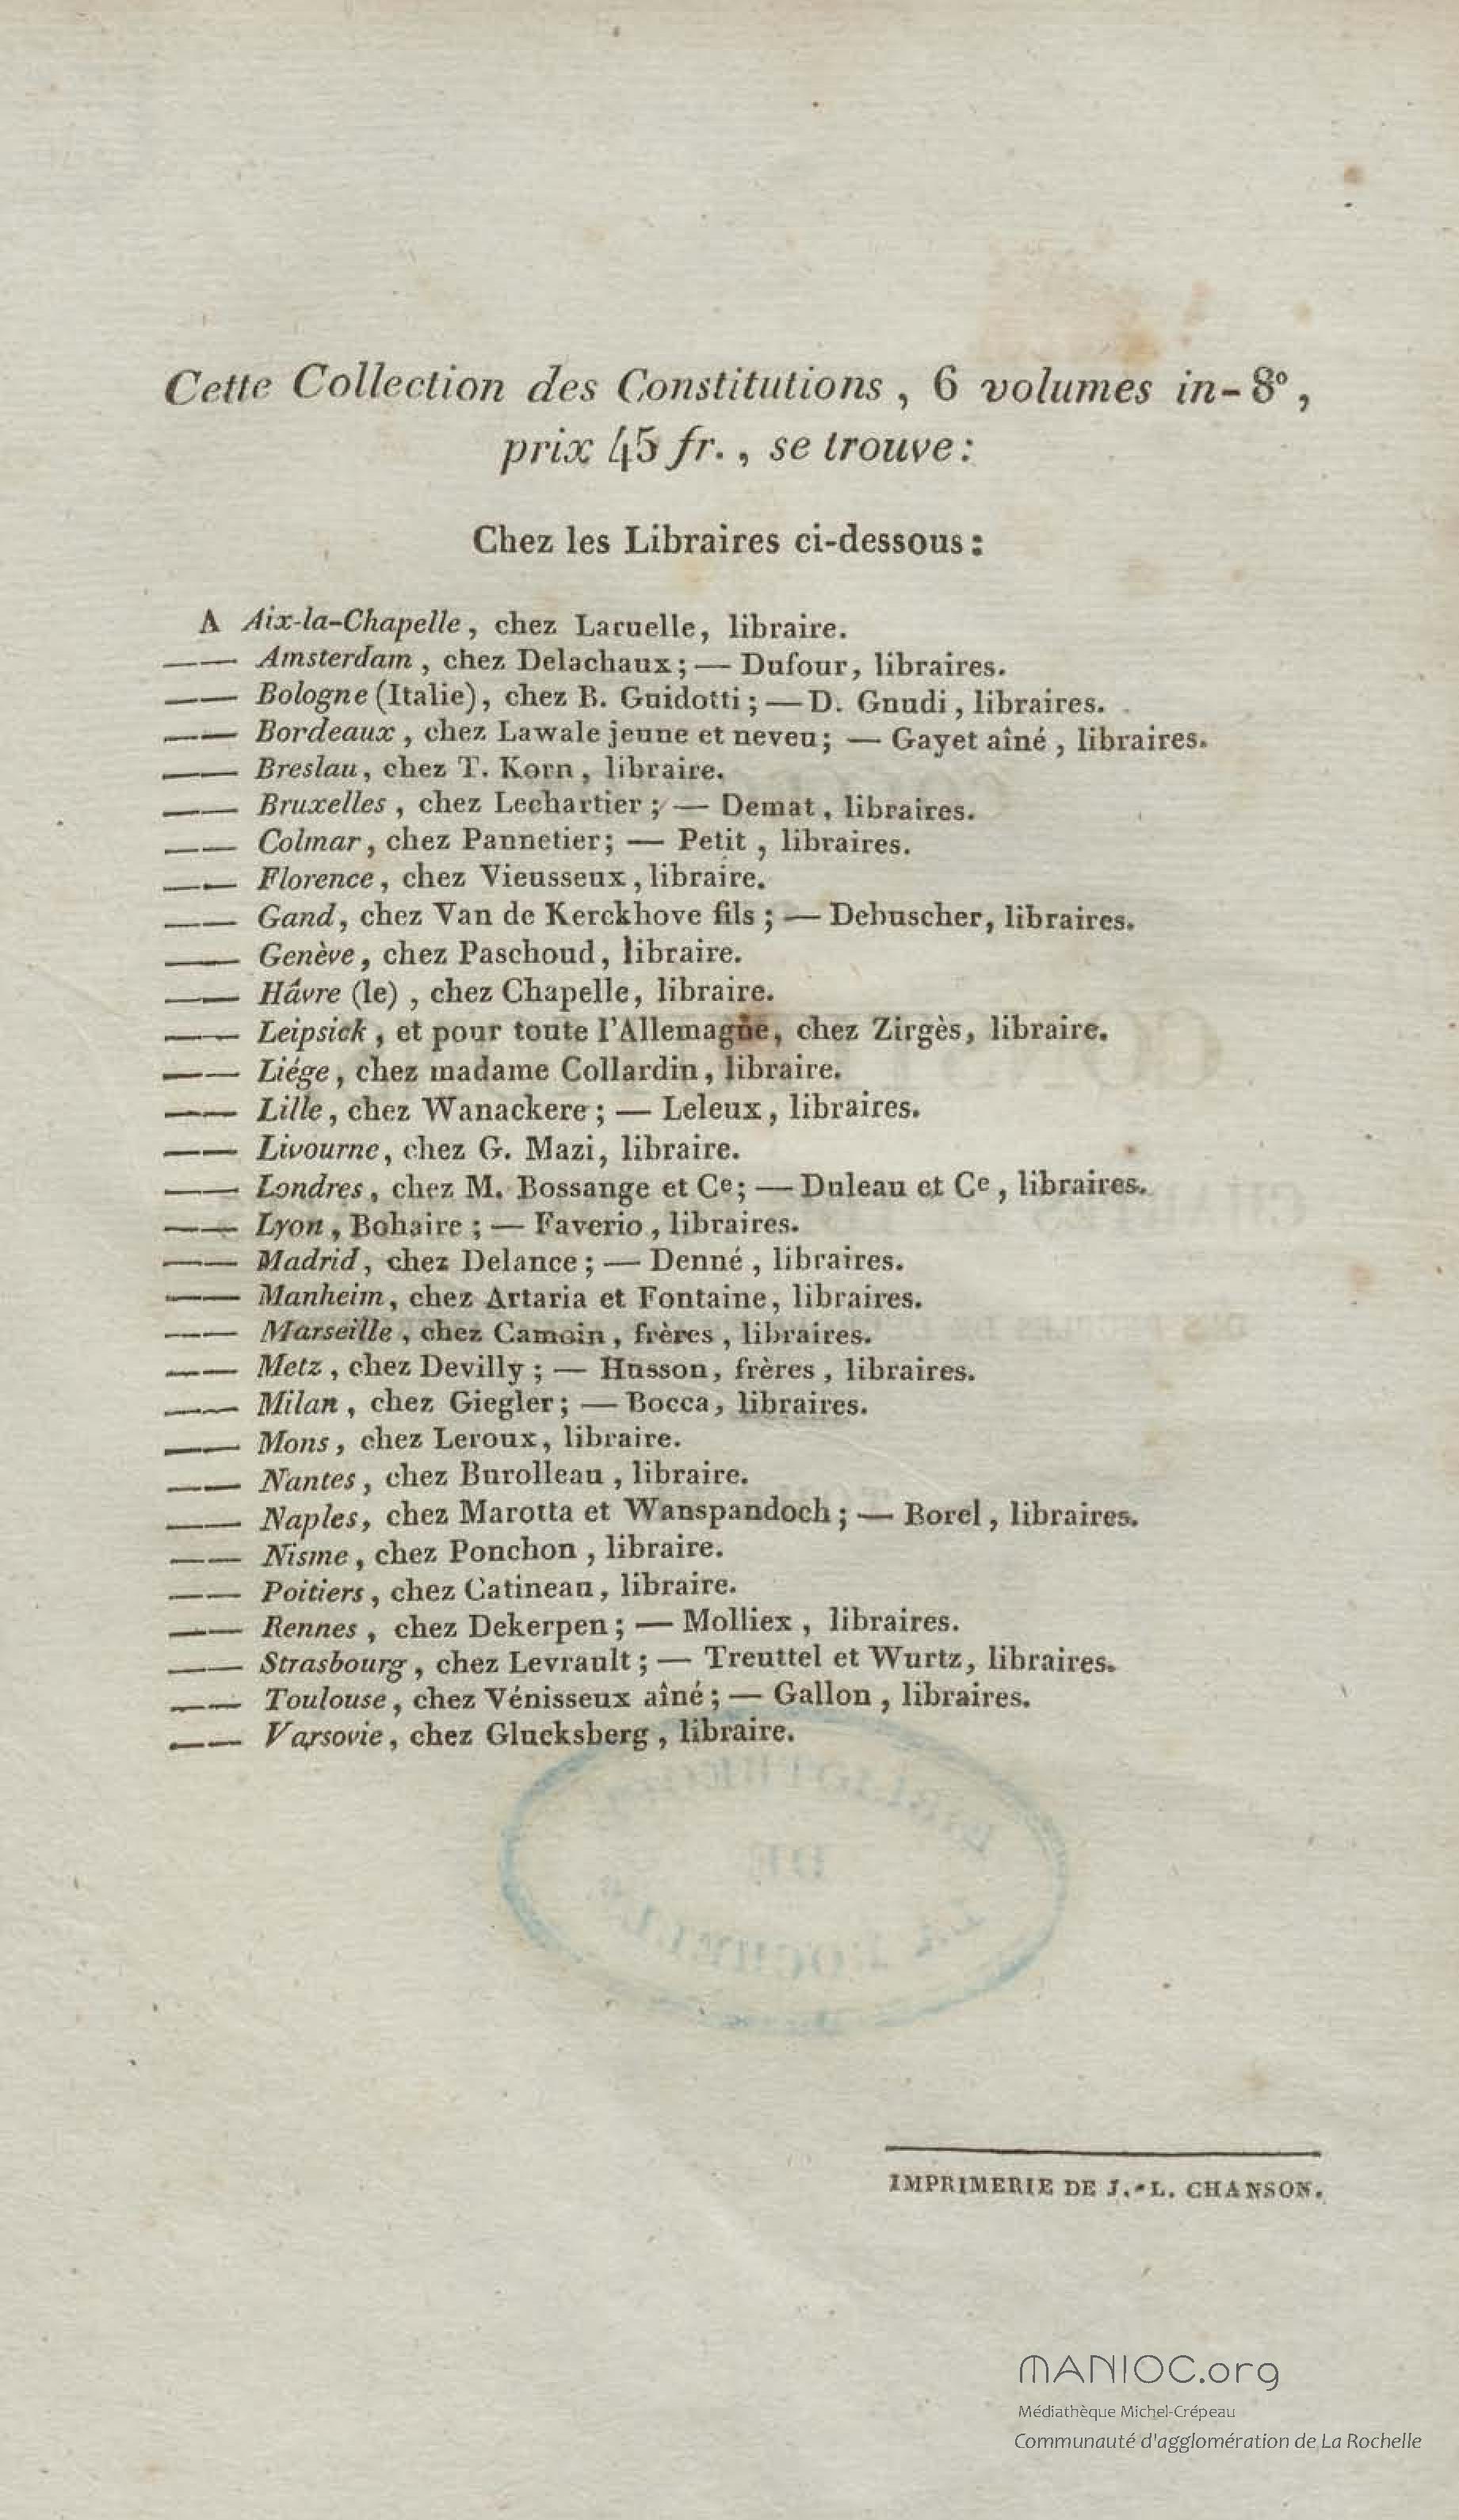 Cette Collection des Constitutions, 6 volumes in-8°,
prix 45 fr., se trouve:
Chez les Libraires ci-dessous:
A Aix-la-Chapelle, chez Laruelle, libraire.
—— Amsterdam, chez Delachaux; — Dufour, libraires.
—— Bologne (Italie), chez B. Guidotti; — D. Gnudi, libraires.
—— Bordeaux, chez Lawale jeune et neveu; — Gayet aîné, libraires.
—— Breslau, chez T. Korn, libraire.
—— Bruxelles, chez Lechartier; — Demat, libraires.
—— Colmar, chez Pannetier; — Petit, libraires.
—— Florence, chez Vieusseux, libraire.
—— Gand, chez Van de Kerckhove fils; — Debuscher, libraires.
—— Genève, chez Paschoud, libraire.
—— Hâvre (le), chez Chapelle, libraire.
—— Leipsick, et pour toute l'Allemagne, chez Zirgès, libraire.
—— Liége, chez madame Collardin, libraire.
—— Lille, chez Wanackere; — Leleux, libraires.
—— Livourne, chez G. Mazi, libraire.
—— Londres, chez M. Bossange et Ce; — Duleau et Ce, libraires.
—— Lyon, Bohaire; — Faverio, libraires.
—— Madrid, chez Delance; — Denné, libraires.
—— Manheim, chez Artaria et Fontaine, libraires.
—— Marseille, chez Camoin, frères, libraires.
—— Metz, chez Devilly; — Husson, frères, libraires.
—— Milan, chez Giegler; — Bocca, libraires.
—— Mons, chez Leroux, libraire.
—— Nantes, chez Burolleau, libraire.
—— Naples, chez Marotta et Wanspandoch; — Borel, libraires.
—— Nisme, chez Ponchon, libraire.
—— Poitiers, chez Catineau, libraire.
—— Rennes, chez Dekerpen; — Molliex, libraires.
—— Strasbourg, chez Levrault; — Treuttel et Wurtz, libraires.
—— Toulouse, chez Vénisseux aîné; — Gallon, libraires.
—— Varsovie, chez Glucksberg, libraire.
IMPRIMERIE DE J.-L. CHANSON.
MANIOC.org
Médiathèque Michel-Crépeau
Communauté d'agglomération de La Rochelle